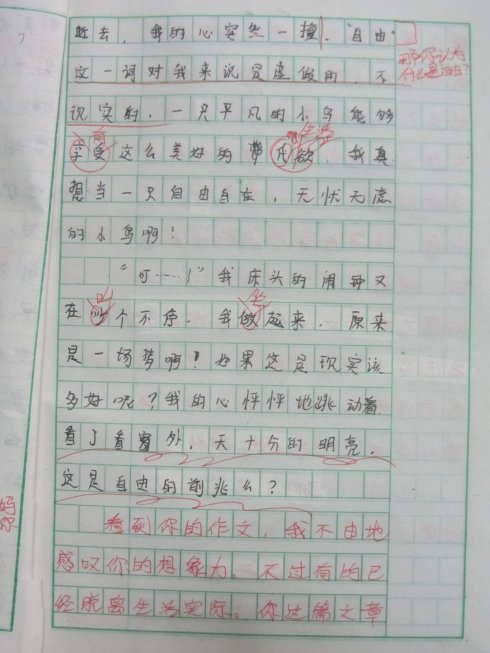 逝去，我的心突然一撞，"自由"
这一词对我来说是虚假的，不
现实的，一只平凡的小鸟能够
享受这么美好的
生活
我真
想当一只自由自在，无忧无虑
的小鸟啊！
"叮……！"我床头的闹钟又
在吵个不停，我做起来，原来
叫
坐
是一场梦啊！如果这是现实该
多好呢？我的心怦怦地跳动着，
看了看窗外，天十分的明亮，
这是自由的前兆么？
看到你的作文，我不由地
感叹你的想象力。不过有的已
经脱离生活实际。你这篇文章
那你认为
什么是自由？
妈
你